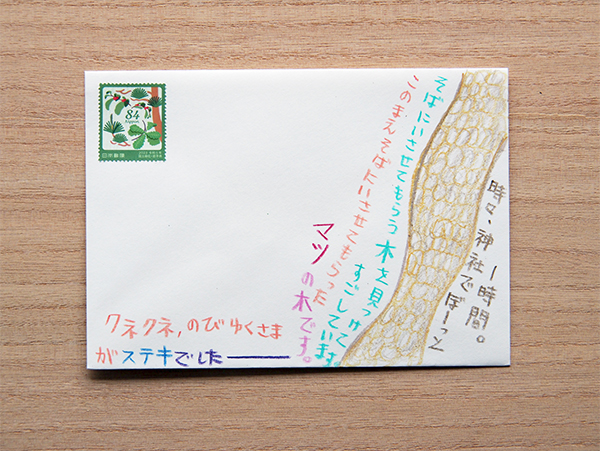 84
NIPPON
日本郵便
時々、神社でぼーっと
一時間。
そばにいさせてもらう木を見つけて
すごしています。
このまえそばにいさせてもらった
マツの木です。
クネクネ,のびゆくさま
がステキでした――